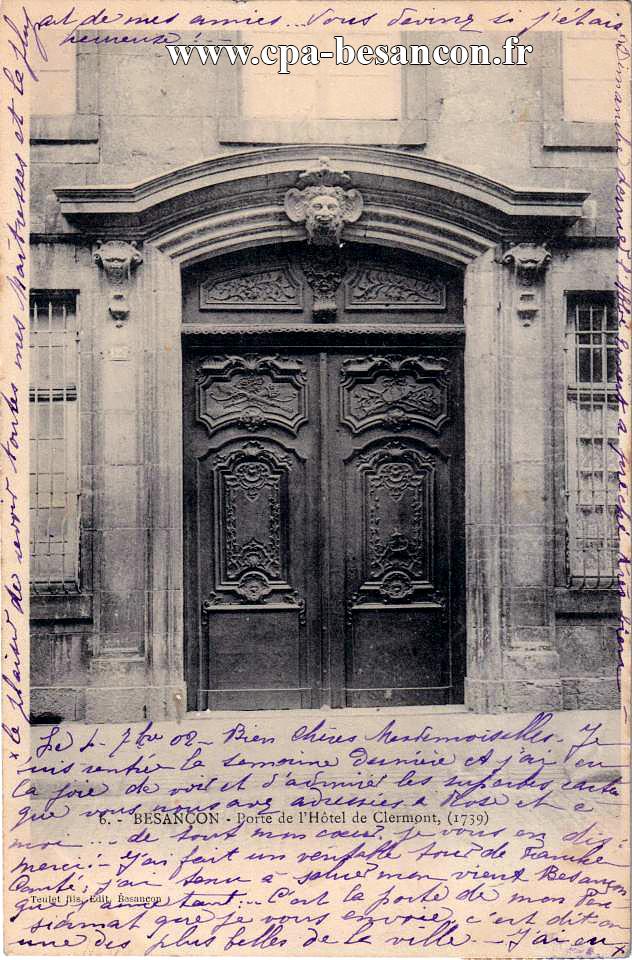 www.cpa-besancon.fr
Le 4 7bre 02 - Bien Chères Mesdemoiselles - Je
suis rentrée la semaine dernière et j'ai eu
la joie de voir et d'admirer les superbes cartes
que vous nous avez adressées à Rose et à
6. - BESANCON - Porte de l'Hôtel de Clermont, (1739)
moi... de tout mon cœur, je vous en dis
merci! - J'ai fait un véritable tour de Franche
Comté; j'ai tenu à saluer mon vieux Besançon
Teulet fils, Edit. Besançon
que j'aime tant... C'est la porte de mon
que je vous envoie, c'est dit-on
une des plus belles de la ville. - J'ai eu x
x le plaisir de revoir toutes mes Maîtresses et la plu
part de mes amies... Vous devinez si j'étais
heureuse!
Dimanche dernier, l'Abbé a prêché très bien